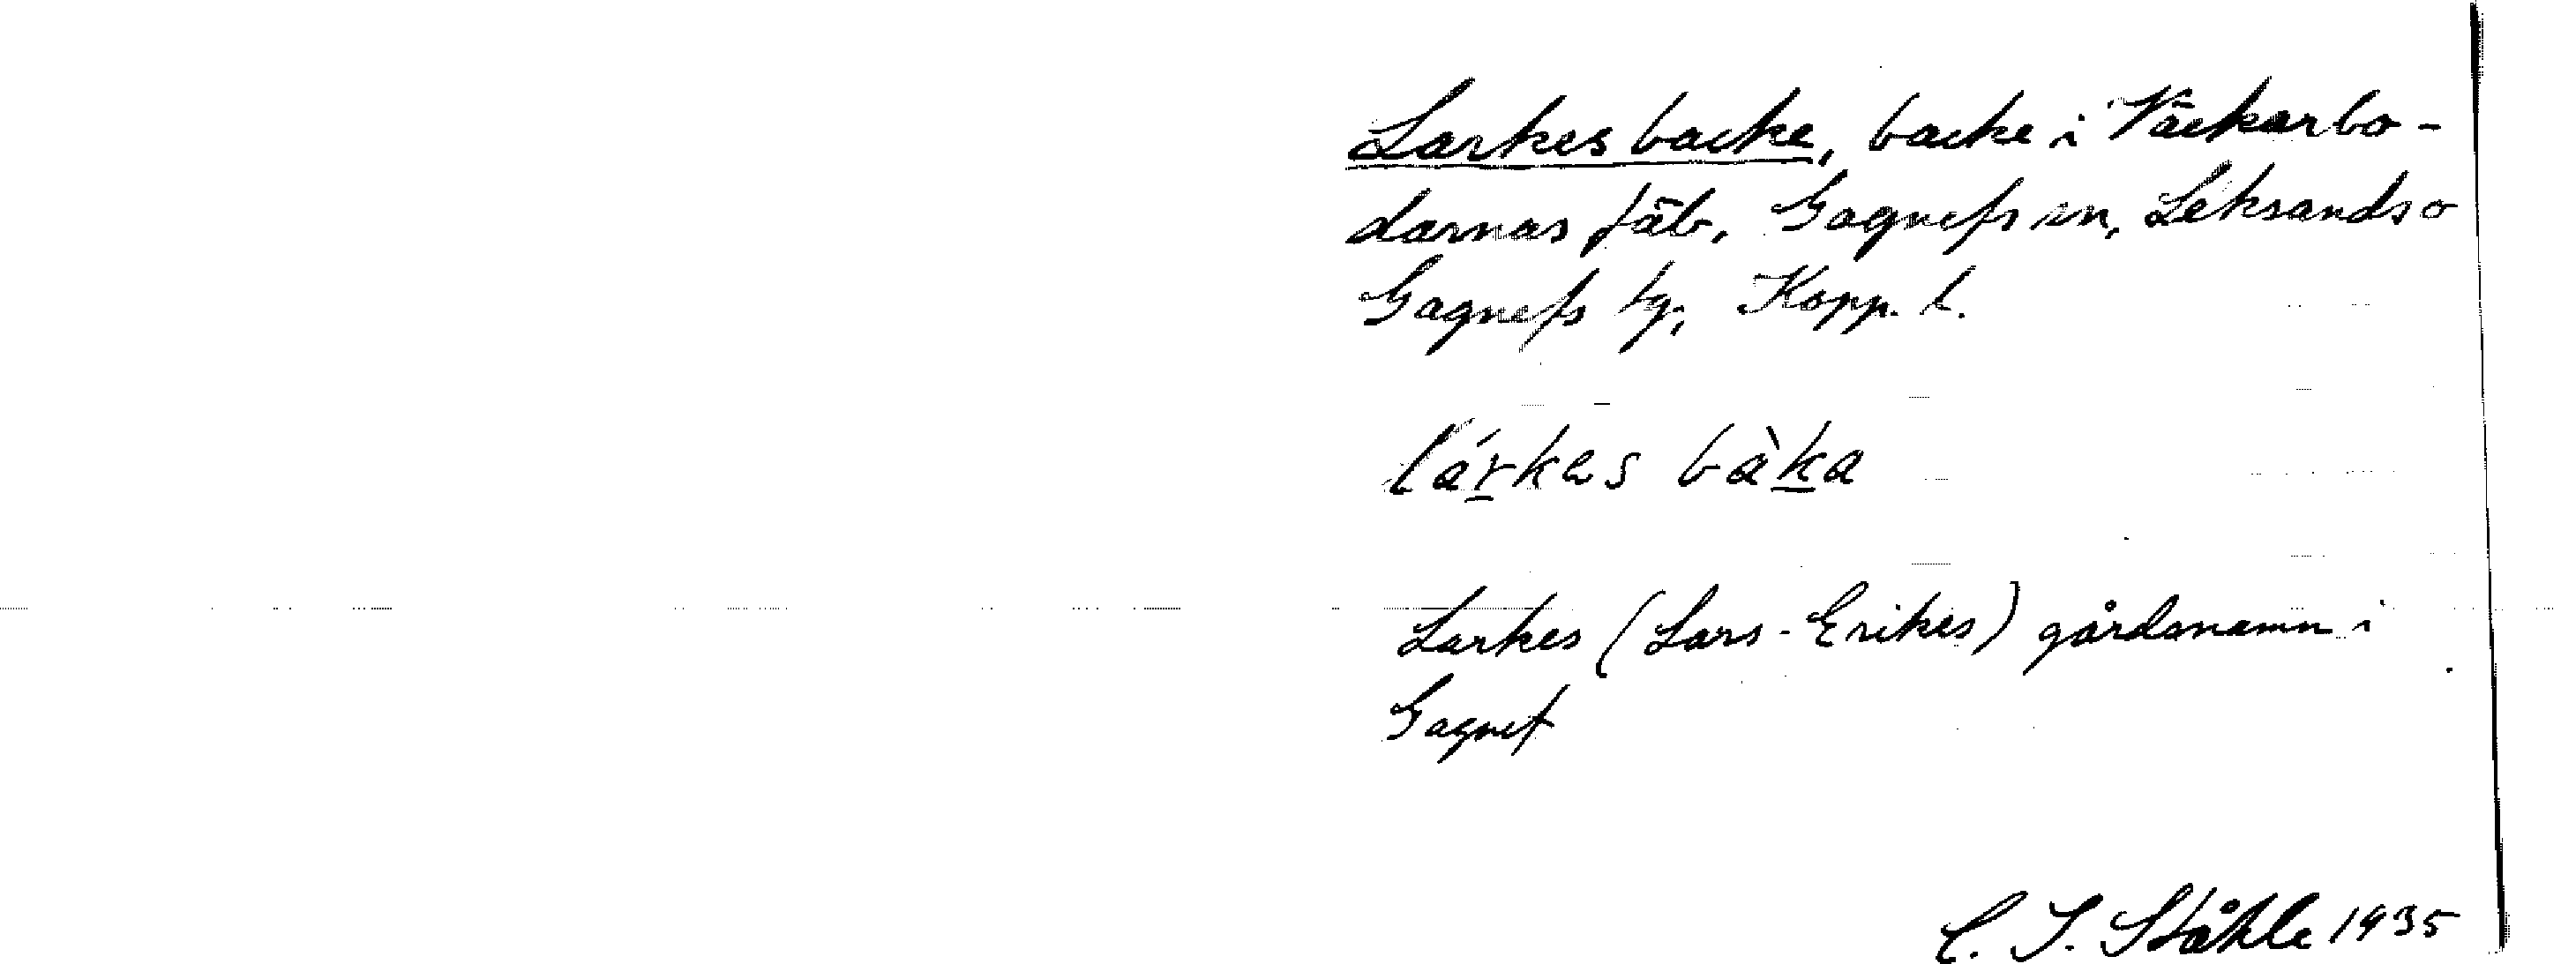 Larkes backe, backe i Väckarbo-
darnas fäb. Gagnefs sn, Leksands o
Gagnefs tg, Kopp. l.
lárkes bàka
Larkes (Lars-Erikes) gårdsnamn i
Gagnef
C. I. Ståhle 1935